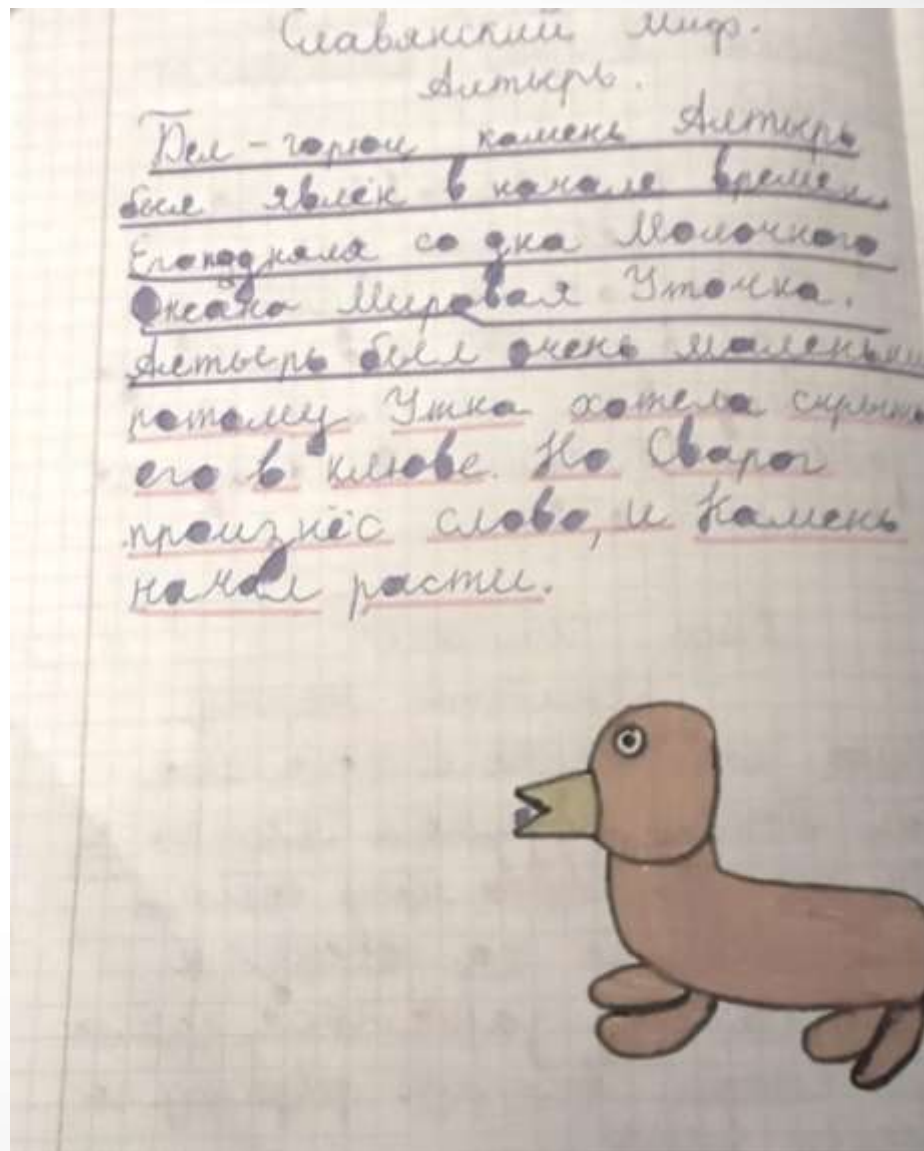 Славянский миф.
Алтырь.
Бел-горюч камень Алтырь
был явлен в начале времен.
Его подняла со дна Молочного
Океана Мировая Уточка.
Алтырь был очень маленьким
потому Утка хотела скрыть
его в клюве. Но Сварог
произнёс слово, и Камень
начал расти.